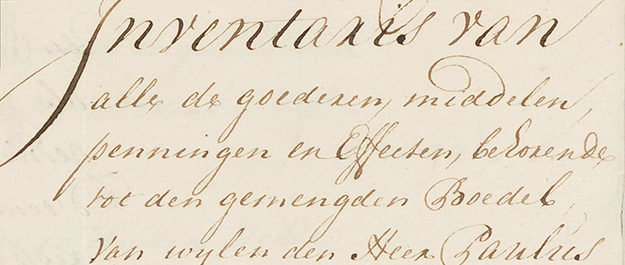 Inventaris van
alle de goederen, middelen,
penningen en Effecten, behorende
tot den gemengden Boedel
van wylen den Heer Paulus